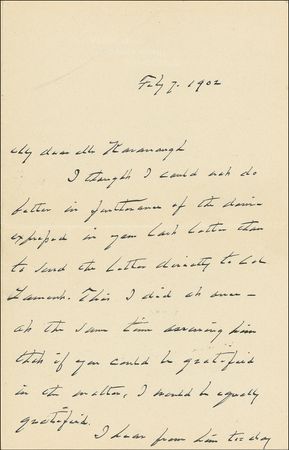 Feby 7. 1902
My dear Mr Kavanaugh
I thought I could not do
better in furtherance of the desire
expressed in your last letter than
to send the letter directly to Col
Lamont. This I did at once –
at the same time assuring him
that if you could be gratified
in the matter, I would be equally
gratified.
I hear from him to-day